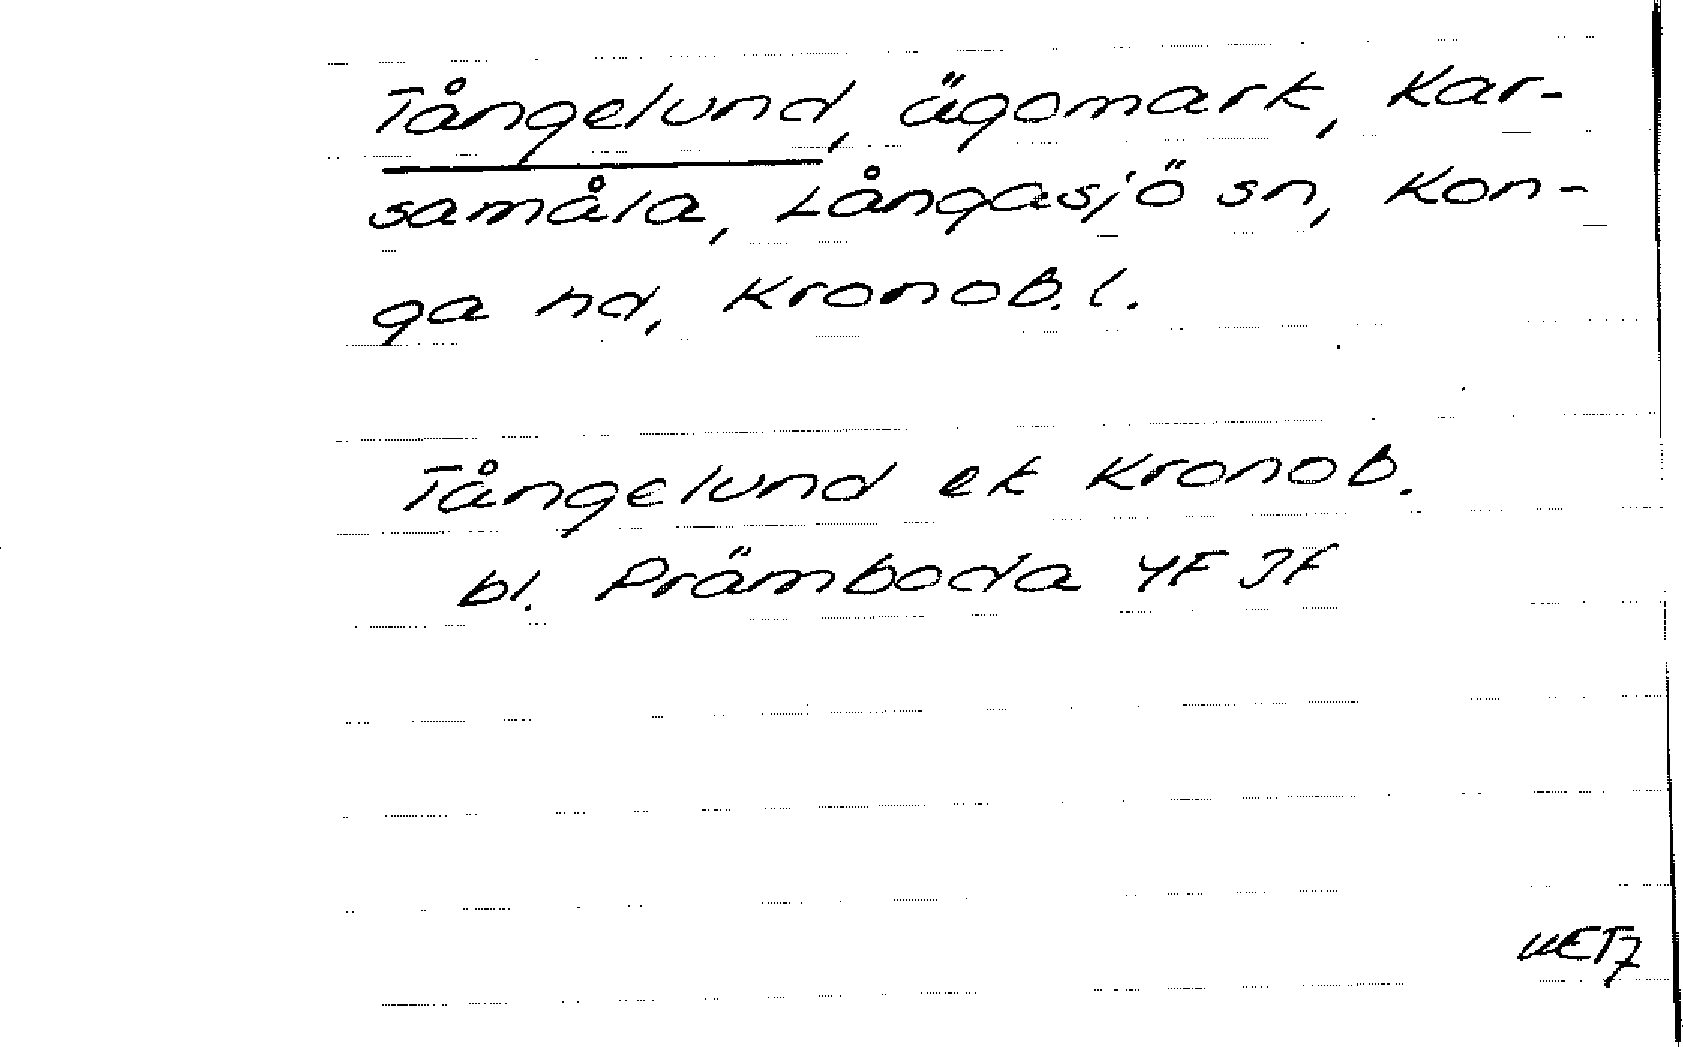 Tångelund, ägomark, Kar-
samåla, Långasjö sn, Kon-
ga hd, Kronob. l.
Tångelund ek Kronob.
bl. Prämboda 4F Jf